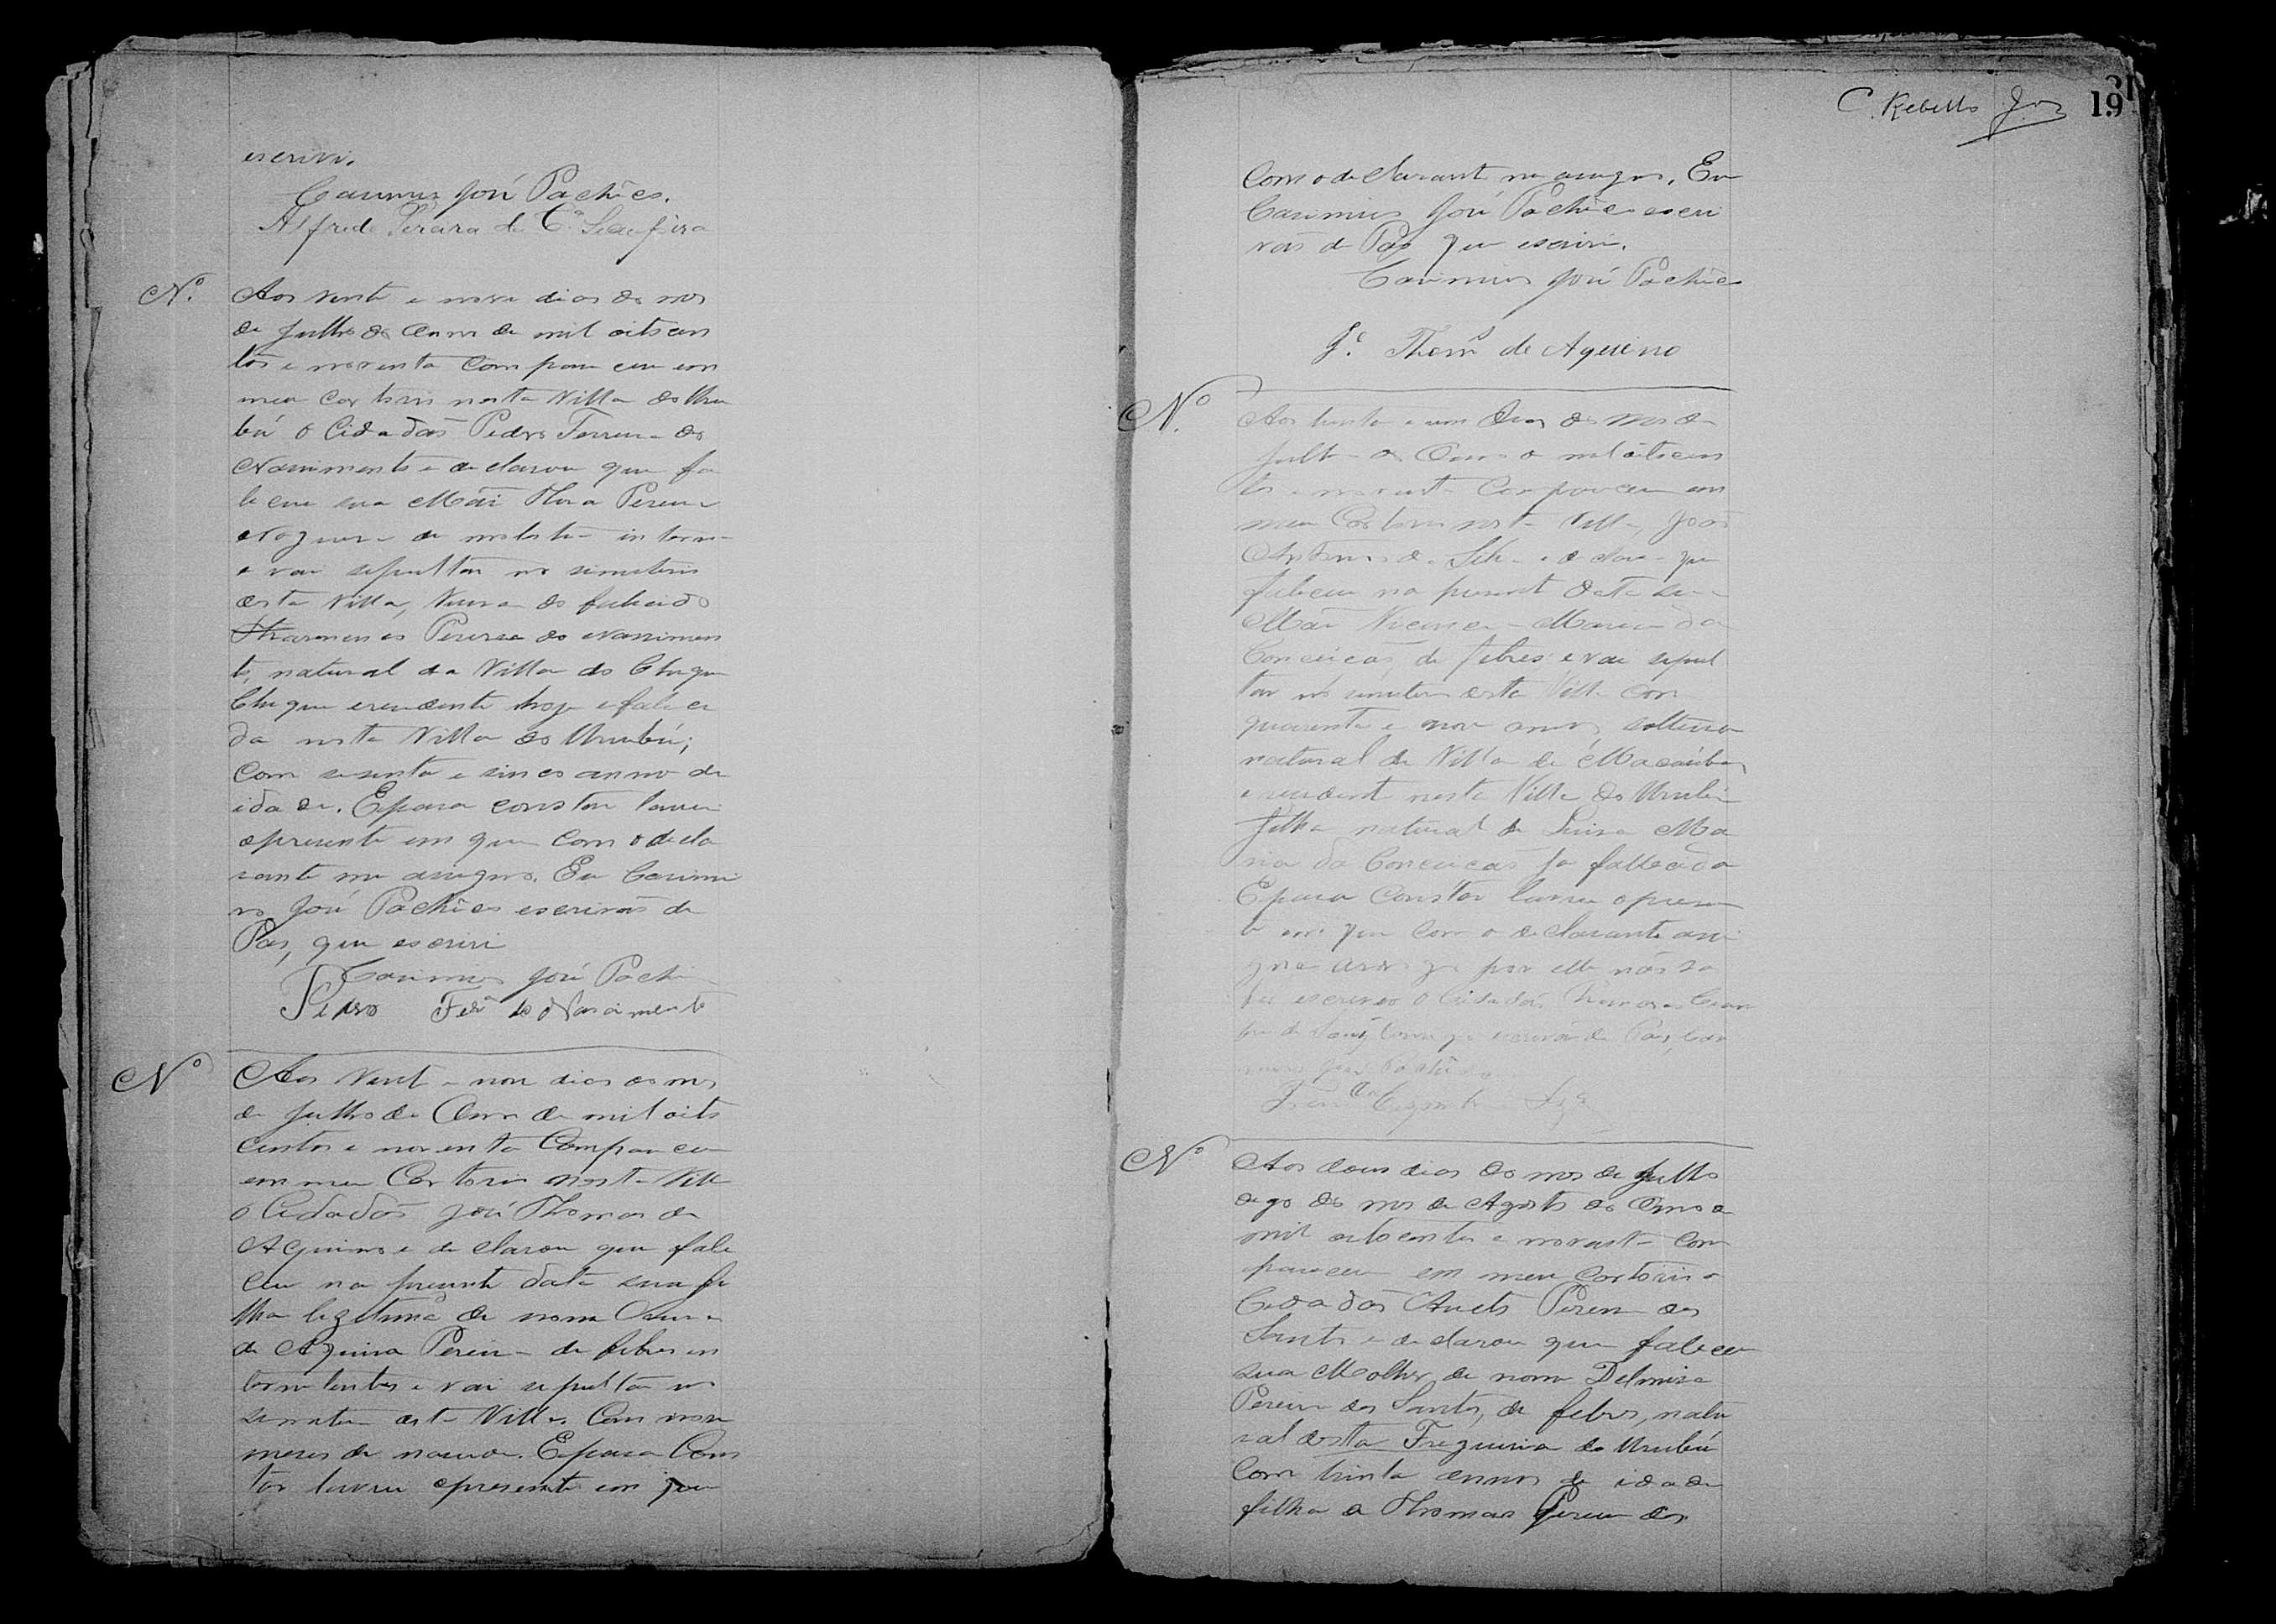 escrivi.
Casimiro José Pachêco.
Alfredo Pereira de
N.º
Aos vinte e nove dias do mes
de Julho do Anno de mil oitocen
tos e noventa compareceu em
meu cartorio nesta Villa do Uru
bú o Cidadão Pedro Ferreira do
Nascimento e declarou que fa
leceu sua Mãi Pereira
de molestia interna
e vai sepultar no simiterio
desta Villa, Viuva do falecido
Pereira do Nascimen
to, natural da Villa do Chique
Chique e residente hoje e faleci
da nesta Villa do Urubú;
com sesenta e sinco anno de
idade. E para constar lavrei
o presente em que com o decla
rante me assigno. Eu Casimi
ro José Pachêco escrivão de
Pas, que escrivi
Casimiro José Pachê
Pedro Ferª do Nascimento
Nº
Aos Vinte e nove dias do mes
de Julho do Anno de mil oito
centos e noventa Compareceu
em meu Cartorio nesta Villa
o Cidadão José Thomas de
Aquino e declarou que fale
ceu na presente data sua fi
lha legitima de nome
de Aquino Pereira de febres in
termitentes e vai sepultar no
simiterio desta Villa. Com nove
meses de nascida. E para Cons
tar lavrei o presente em que
C. Rebello
19
31
Com o declarante me assigno. Eu
Casimiro José Pachêco escri
vão de Pas que escrivi.
Casimiro José Pachêco
Jé. Thomˢ de Aquino
Nº
Aos trinta e um dias do mes de
Julho do Anno de mil oitocen
tos e noventa Compareceu em
meu Cartorio nesta Villa, João
Antonio da Silva e declarou que
faleceu na presente data sua
Mãi Vicencia Maria da
Conceicão, de febres e vai sepul
tar no simiterio desta Villa com
quarenta e nove annos solteira
natural da Villa de Macaúbas
e residente nesta Villa do Urubú
filha natural de Luisa Ma
ria da Conceicão ja fallecida
E para Constar lavrei o presen
te em que com o declarante assi
gna a rogo por elle não sa
ber escrever o Cidadão
escrivão de Pas, Casi
miro José Pachêco
Nº
Aos dous dias do mes de Julho
digo do mes de Agosto do Anno de
mil oitocentos e noventa com
pareceu em meu cartorio o
Cidadão Pereira dos
Santos e declarou que faleceu
sua Molher de nome Delmira
Pereira dos Santos, de febres, natu
ral desta Freguesia do Urubú
Com trinta annos de idade
filha de Thomas Pereira dos